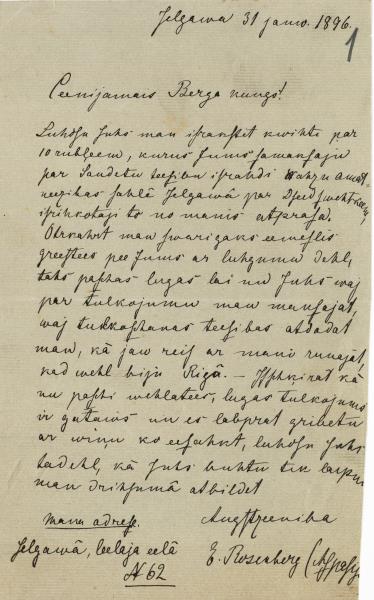 Jelgawa 31 janw. 1896.
1
Ceenijamais Berga kungs!
Luhdsu Juhs man israkstit kwihti par
10 rubļeem, kurus Jums samaksaju
par teesibu israhdi Amat-
neezibas sahlē Jelgawā par
isrihkotaji to no manis atprasa.
Otrkahrt man swarigaks eemeslis
greestees pee Jums ar luhgumu dehļ,
tahs paschas lugas lai nu Juhs waj
par tulkojumu man maksajat,
waj tulkoschanas teesibas atdodat
man, kā jaw reis ar mani runajāt,
kad wehl biju Rigā. — kā
nu paschi wehlatees, lugas tulkojums
ir gataws un es labprat gribetu
ar wiņu ko eesahkt, luhdsu Juhs
tadehļ, kā Juhs buhtu tik laipni
man drihsumā atbildet
Augstzeeniba
Manu adrese.
Jelgawā, leelaja eelā
E. Rosenberg
№ 62